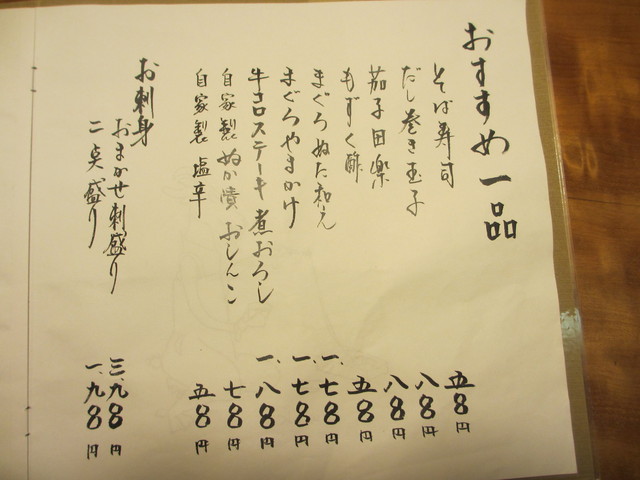 おすすめ一品
そば寿司 五〇〇円
だし巻き玉子 八〇〇円
茄子田楽 八〇〇円
もずく酢 五〇〇円
まぐろぬた和え 一、七〇〇円
まぐろやまかけ 一、七〇〇円
牛コロステーキ煮おろし 一、八〇〇円
自家製ぬか漬おしんこ 七〇〇円
自家製塩辛 五〇〇円
お刺身
おまかせ刺盛り 三、九〇〇円
二点盛り 一、九〇〇円